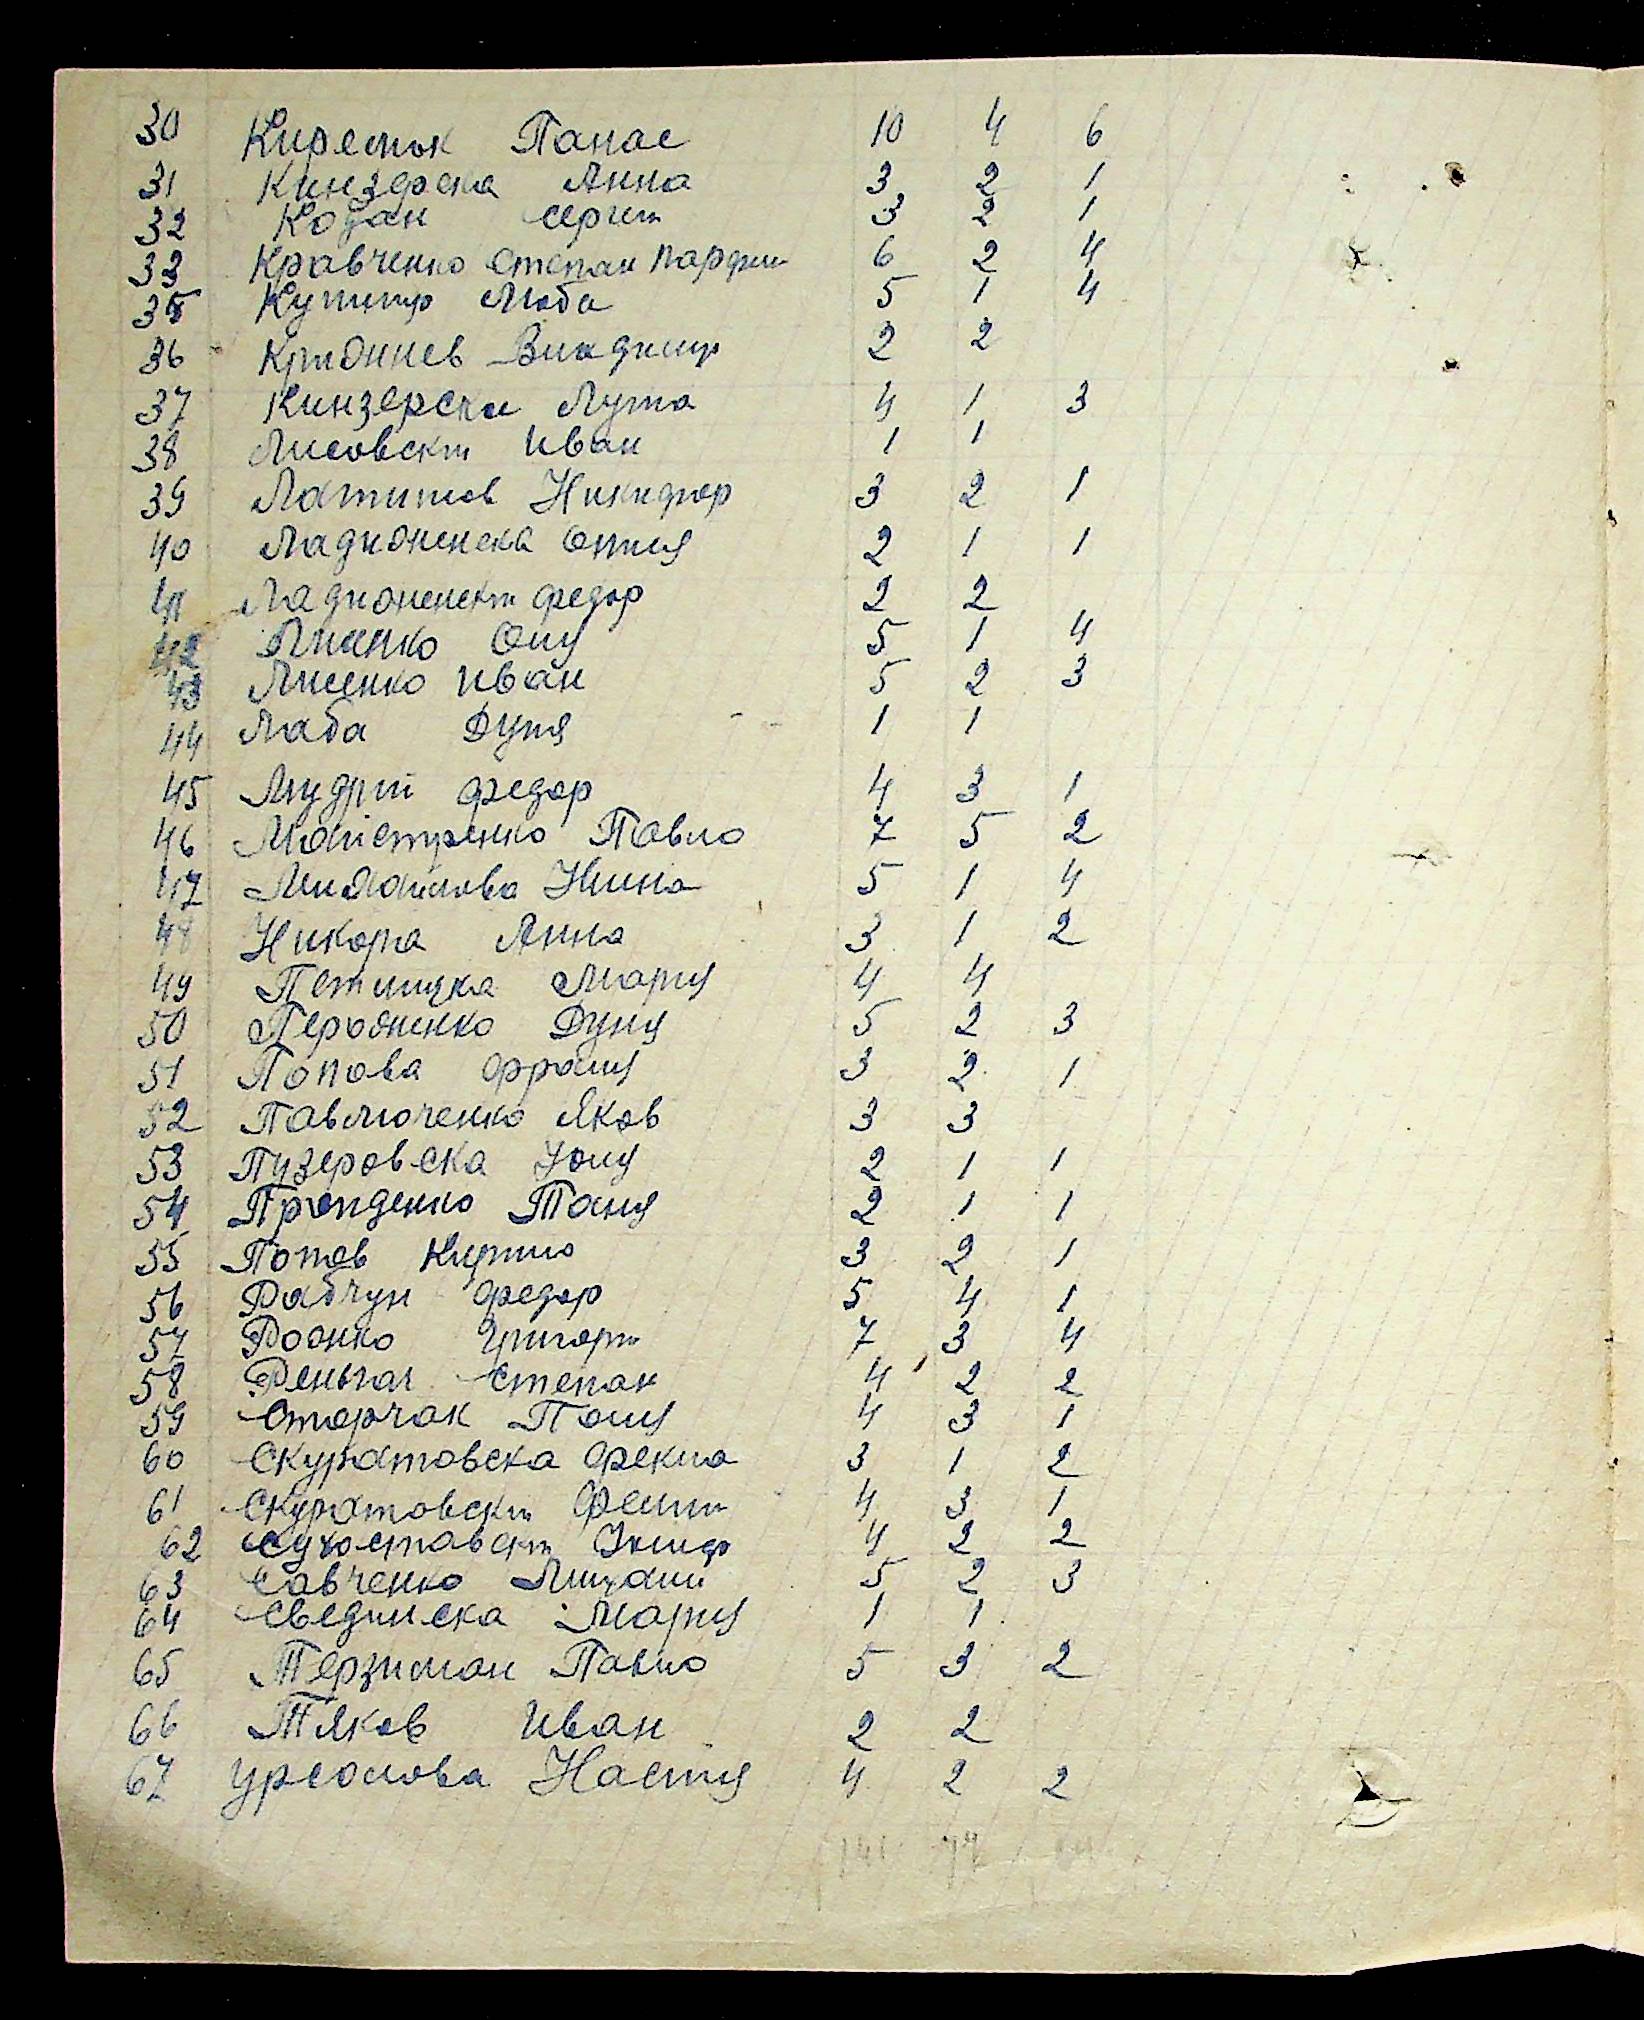 30 Киремок Панас 10 4 6
31 Кинзерска Анна 3 2 1
32 Коган Сергей 3 2 1
33 Кравченко Степан Парфин 6 2 4
35 Кушнир Люба 5 1 4
36 Владимир 2 2
37 Кинзерска Луша 4 1 3
38 Лисовский Иван 1 1
39 Латипов Никифор 3 2 1
40 Ладионенска 2 1 1
41 Ладионенский Федор 2 2
42 Лисенко Оля 5 1 4
43 Лисенко Иван 5 2 3
44 Лаба Дуня 1 1
45 Мудрий Федор 4 3 1
46 Майстренко Павло 7 5 2
47 Михайлова Нина 5 1 4
48 Никора Анна 3 1 2
49 Мария 4 4
50 Дуня 5 2 3
51 Попова Фрося 3 2 1
52 Павлюченко Яков 3 3
53 Пузеровска Юля 2 1 1
54 Таня 2 1 1
55 Попов Кирило 3 2 1
56 Рабчун Федор 5 4 1
57 Григорий 7 3 4
58 Степан 4 2 2
59 Сторчак Поля 4 3 1
60 Скуратовска Фекла 3 1 2
61 Скуратовский 4 3 1
62 4 2 2
63 Савченко Михаил 5 2 3
64 Свединска Мария 1 1
65 Терзиман Павло 5 3 2
66 Тяков Иван 2 2
67 Урсолова Настя 4 2 2